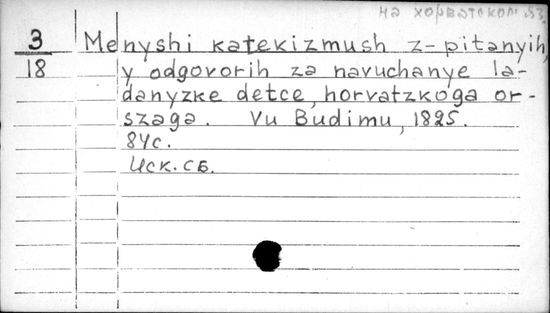 на хорватском яз.
3
18
Menyshi katekizmush z-pitanyih,
y odgovorih za navuchanye la-
danyzke detce, horvatzkoga or-
szaga. Vu Budimu, 1825.
84с.
Иск. сб.